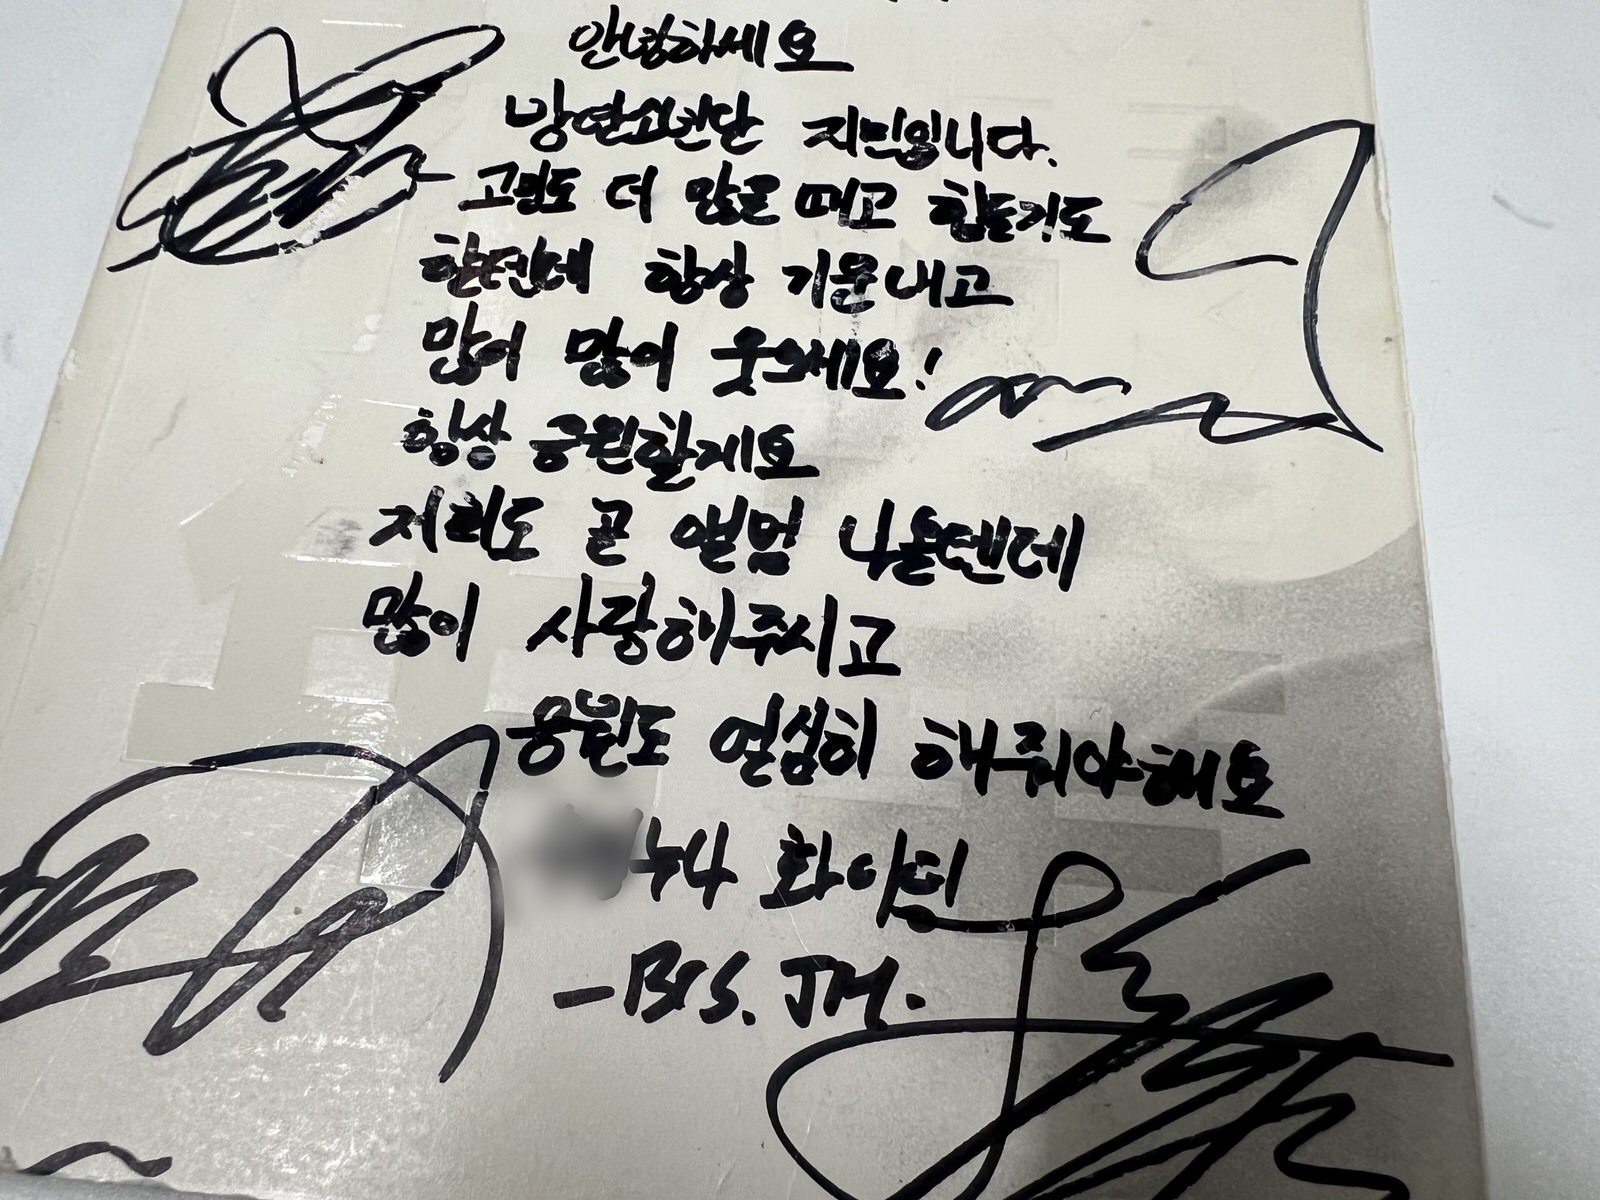 안녕하세요
방탄소년단 지민입니다.
고민도 더 많을 때고 힘들기도
할텐데 항상 기운내고
많이 많이 웃으세요!
항상 응원할게요
저희도 곧 앨범 나올텐데
많이 사랑해주시고
응원도 열심히 해줘야해요
누나 화이팅
-BTS. JM.